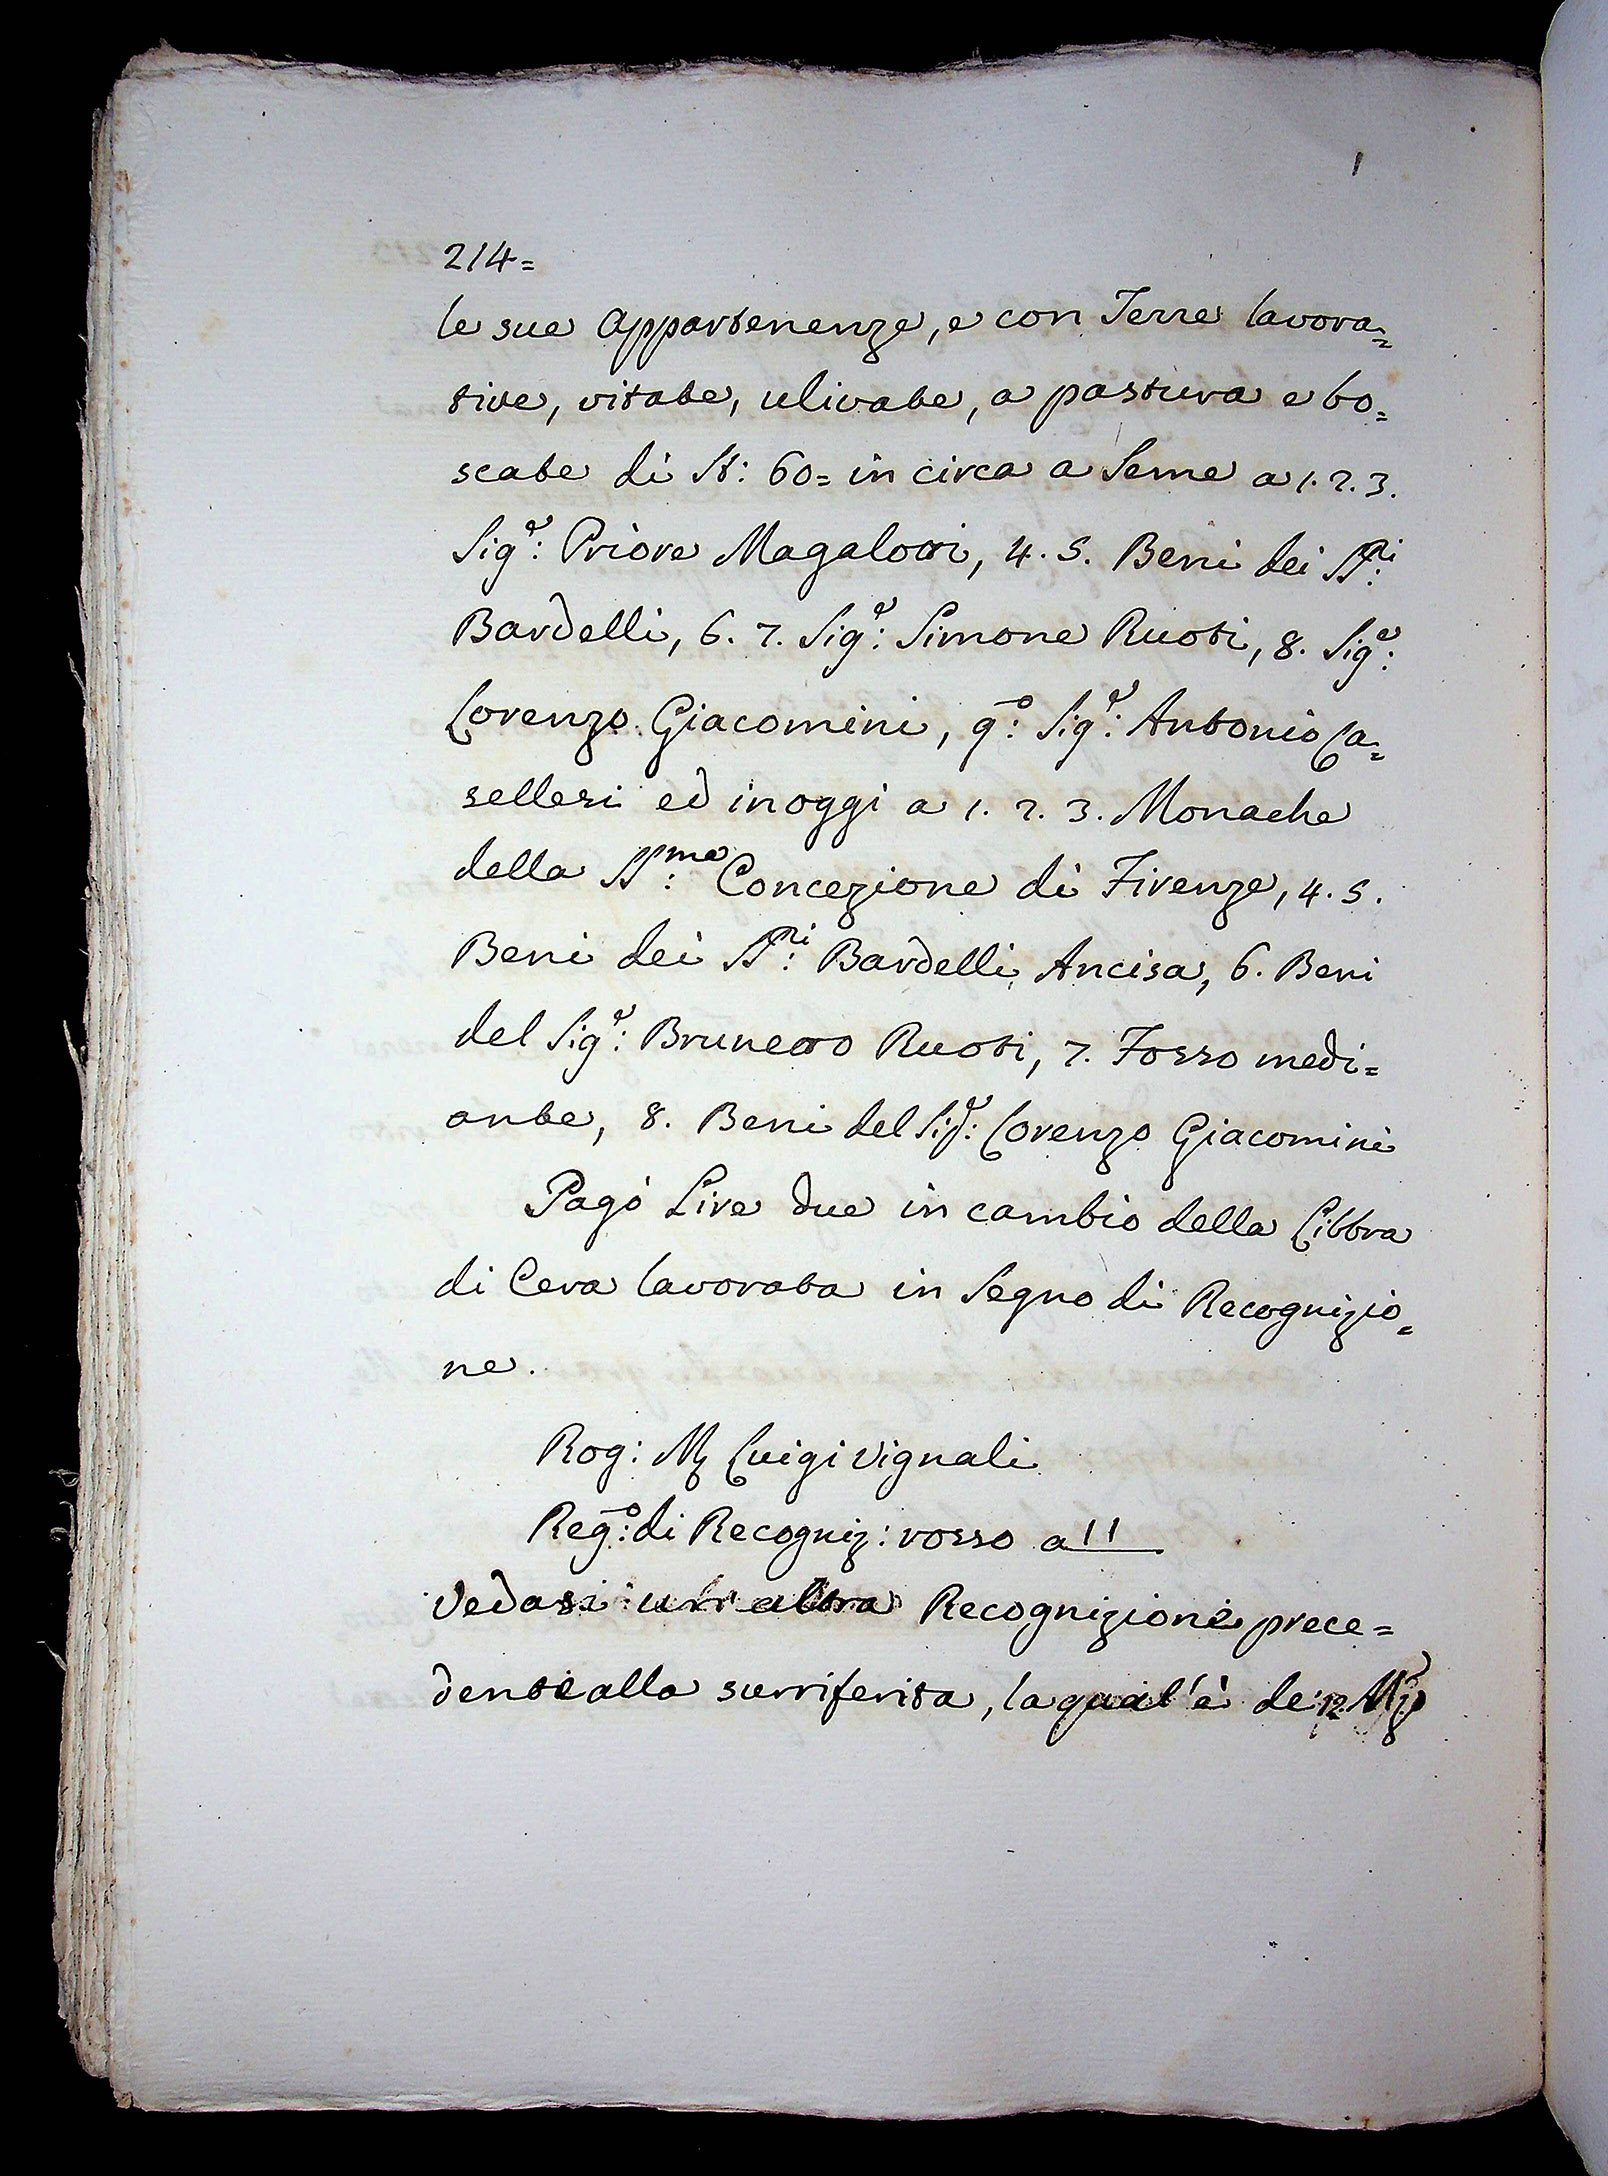 214=
le sue Appartenenze, e con Terre lavora=
tive, vitate, ulivate, a pastura e bo=
scate di St: 60= in circa a Seme a 1. 2. 3.
Sig.r: Priore Magalotti, 4. 5. Beni dei SS.ri:
Bardelli, 6. 7. Sig.r: Simone Ruoti, 8. Sig.r:
Lorenzo Giacomini, 9.o: Sig.r: Antonio Ca=
sellesi ed in oggi a 1. 2. 3. Monache
della SS.ma: Concezione di Firenze, 4. 5.
Beni dei SS.ri: Bardelli Ancisa, 6. Beni
del Sig.r: Brunetto Ruoti, 7. Fosso medi=
ante, 8. Beni del Sig.r: Lorenzo Giacomini
Pagò Lire due in cambio della Libbra
di Cera lavorata in Segno di Recognizio=
ne.
Rog: Luigi Vignali
Reg.o: di Recogniz: rosso a 11
Vedasi un altra Recognizione prece=
dente alla surriferita, la qual'è de 12.